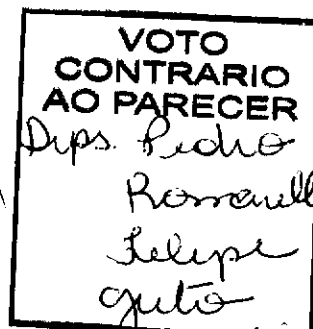 VOTO
CONTRARIO
AO PARECER
Dips. Pedro
Rossarell
Felipe
Guto